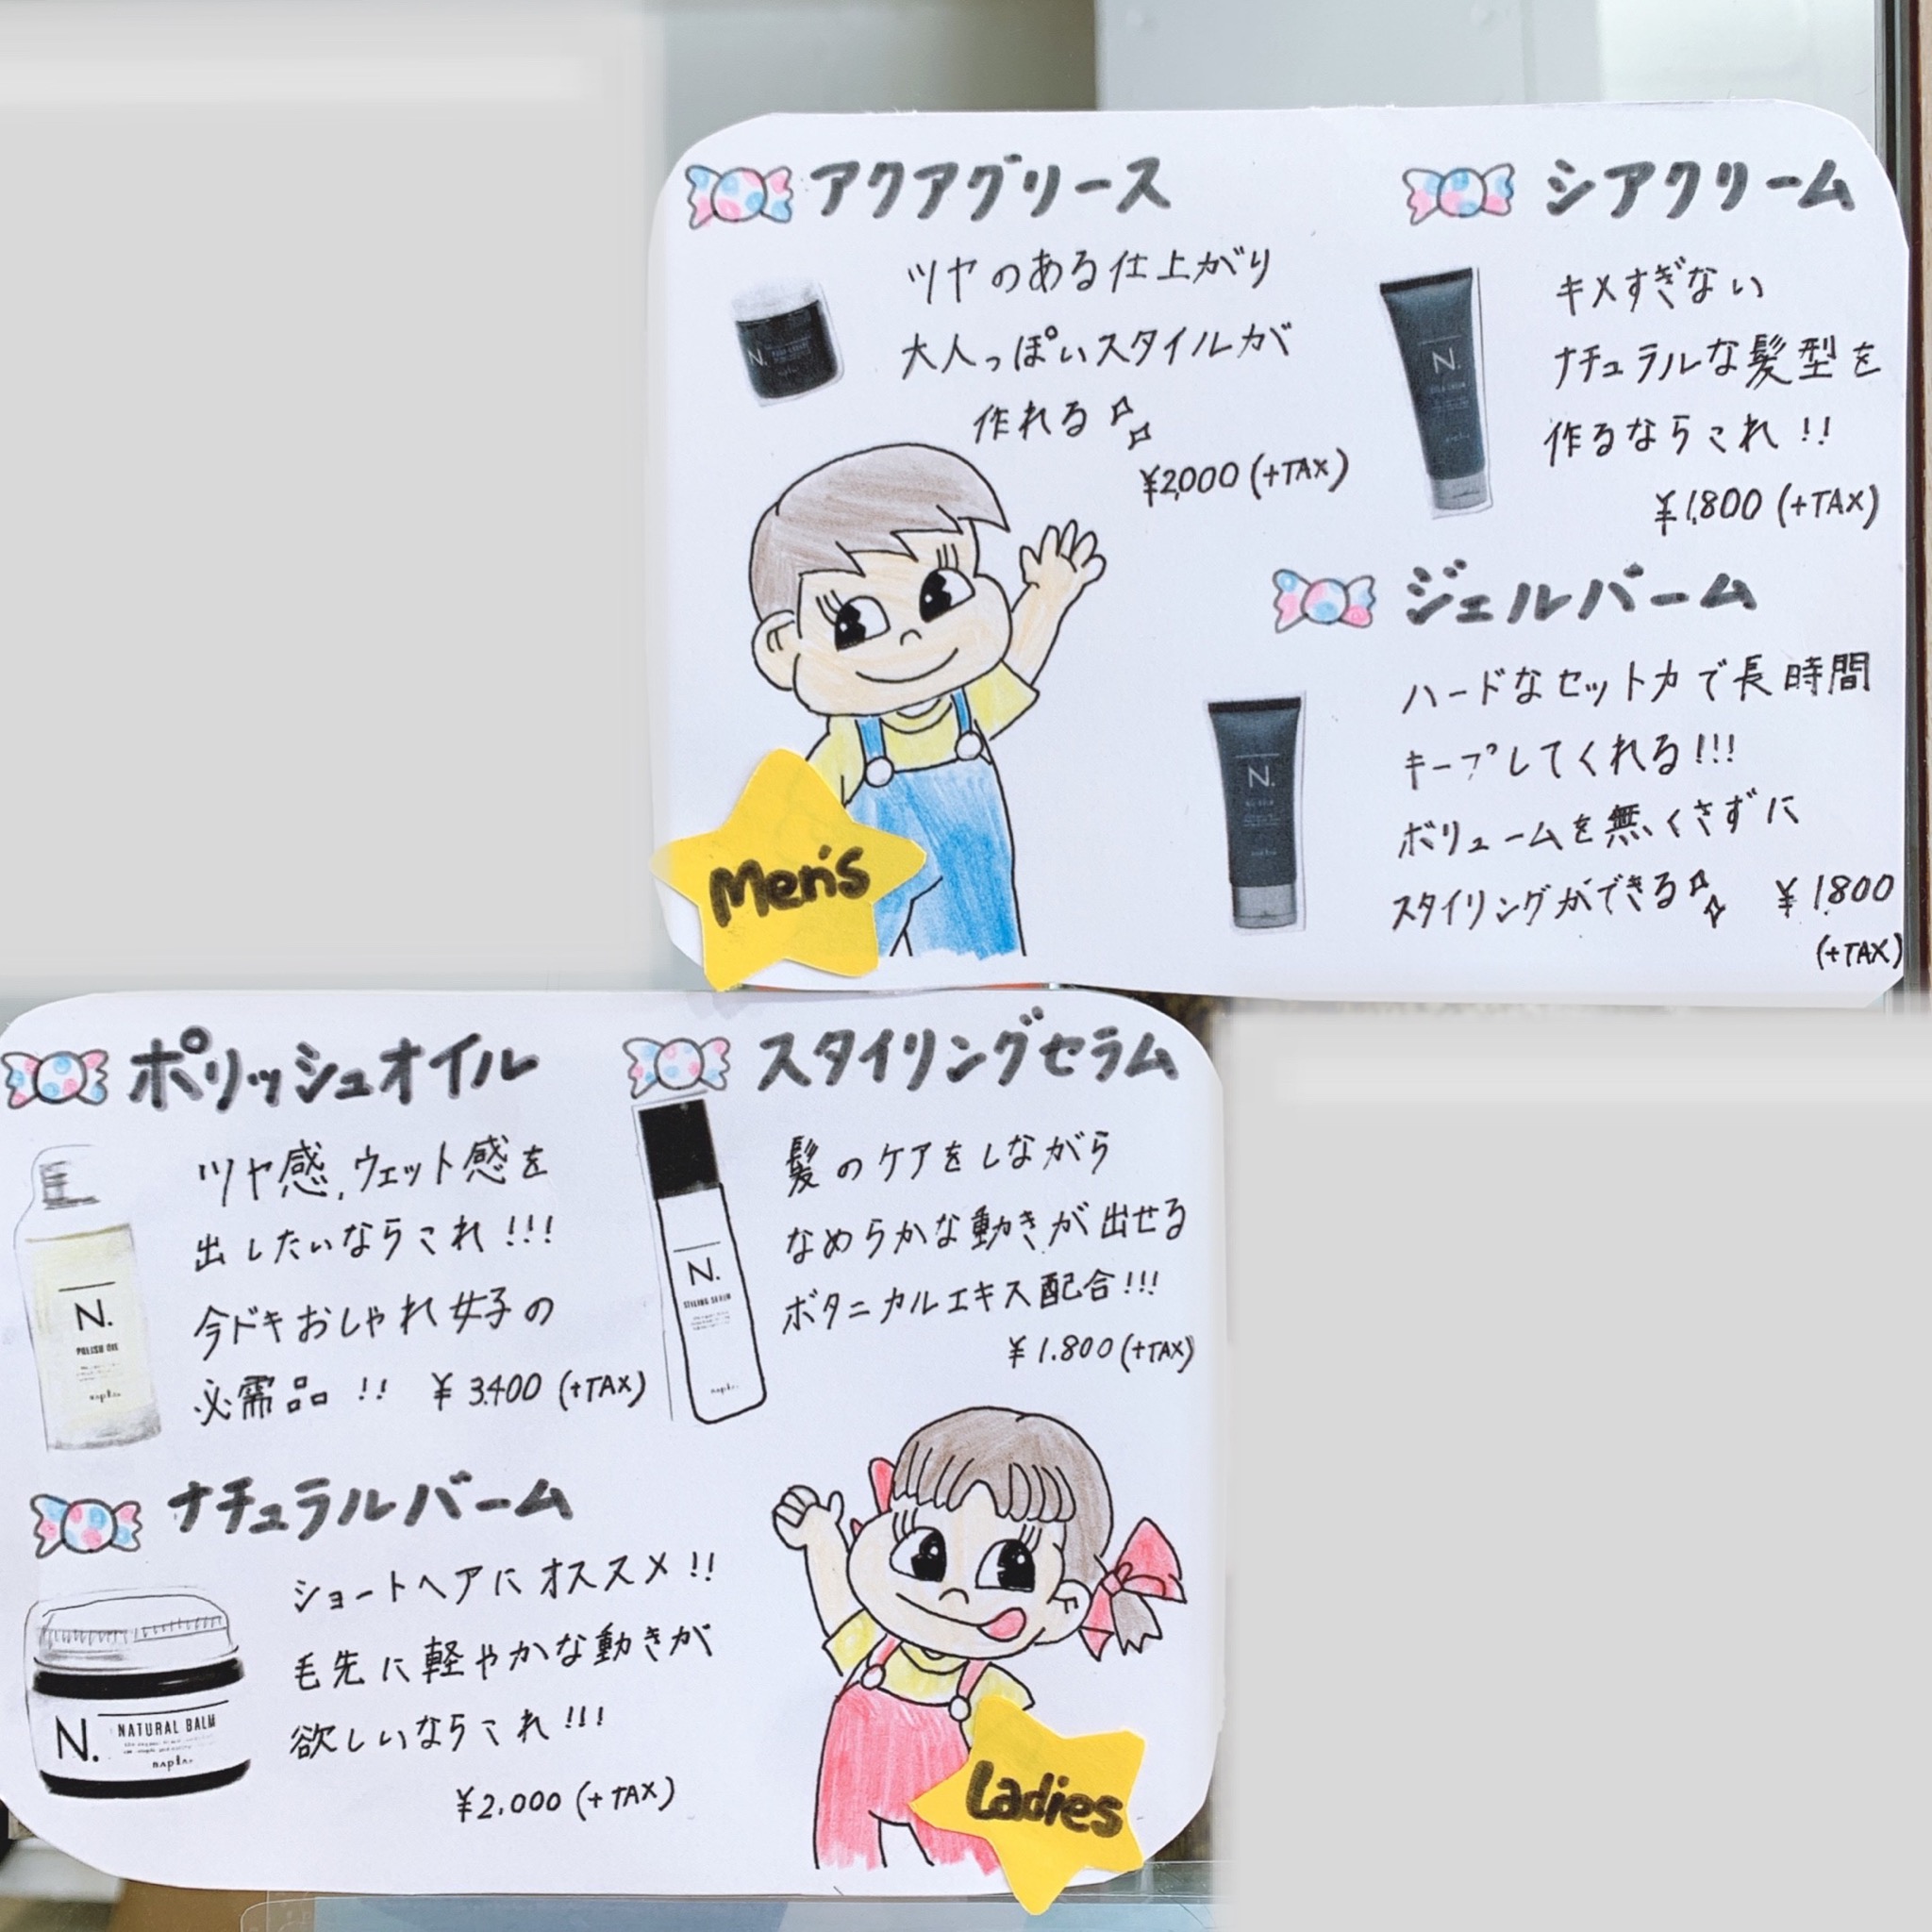 アクアグリース
ツヤのある仕上がり
大人っぽいスタイルが
作れる
¥2,000 (+TAX)
シアクリーム
N.
キメすぎない
ナチュラルな髪型を
作るならこれ!!
¥1,800 (+TAX)
N.
ジェルバーム
N.
ハードなセット力で長時間
キープしてくれる!!!
ボリュームを無くさずに
スタイリングができる ¥1,800
(+TAX)
Men's
ポリッシュオイル
ツヤ感、ウェット感を
出したいならこれ!!!
今ドキおしゃれ女子の
必需品!! ¥3,400 (+TAX)
N.
POLISH OIL
napla
スタイリングセラム
髪のケアをしながら
なめらかな動きが出せる
ボタニカルエキス配合!!!
¥1.800 (+TAX)
N.
STYLING SERUM
napla
ナチュラルバーム
ショートヘアにオススメ!!
毛先に軽やかな動きが
欲しいならこれ!!!
¥2.000 (+TAX)
N. NATURAL BALM
napla
Ladies